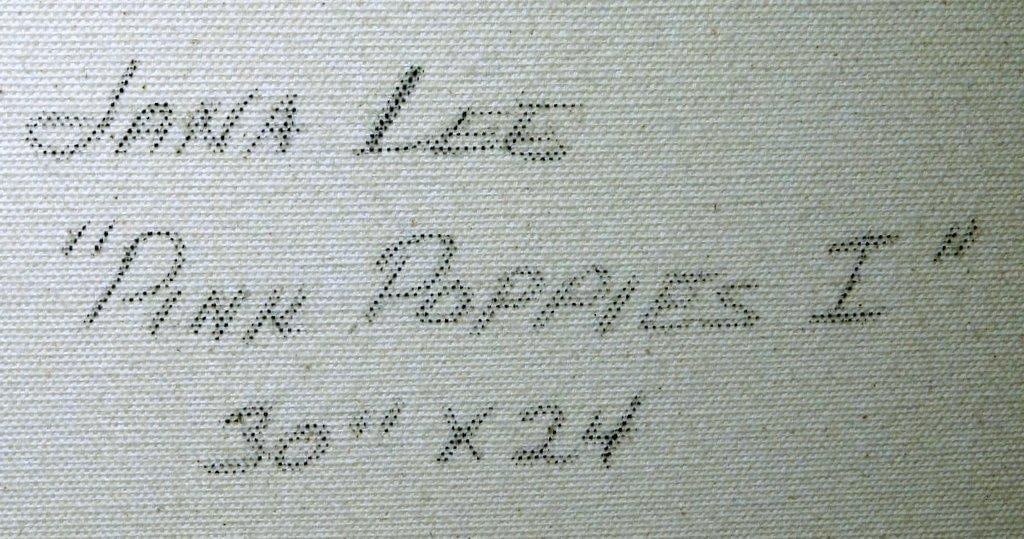 JANA LEE
"PINK POPPIES I"
30" X 24